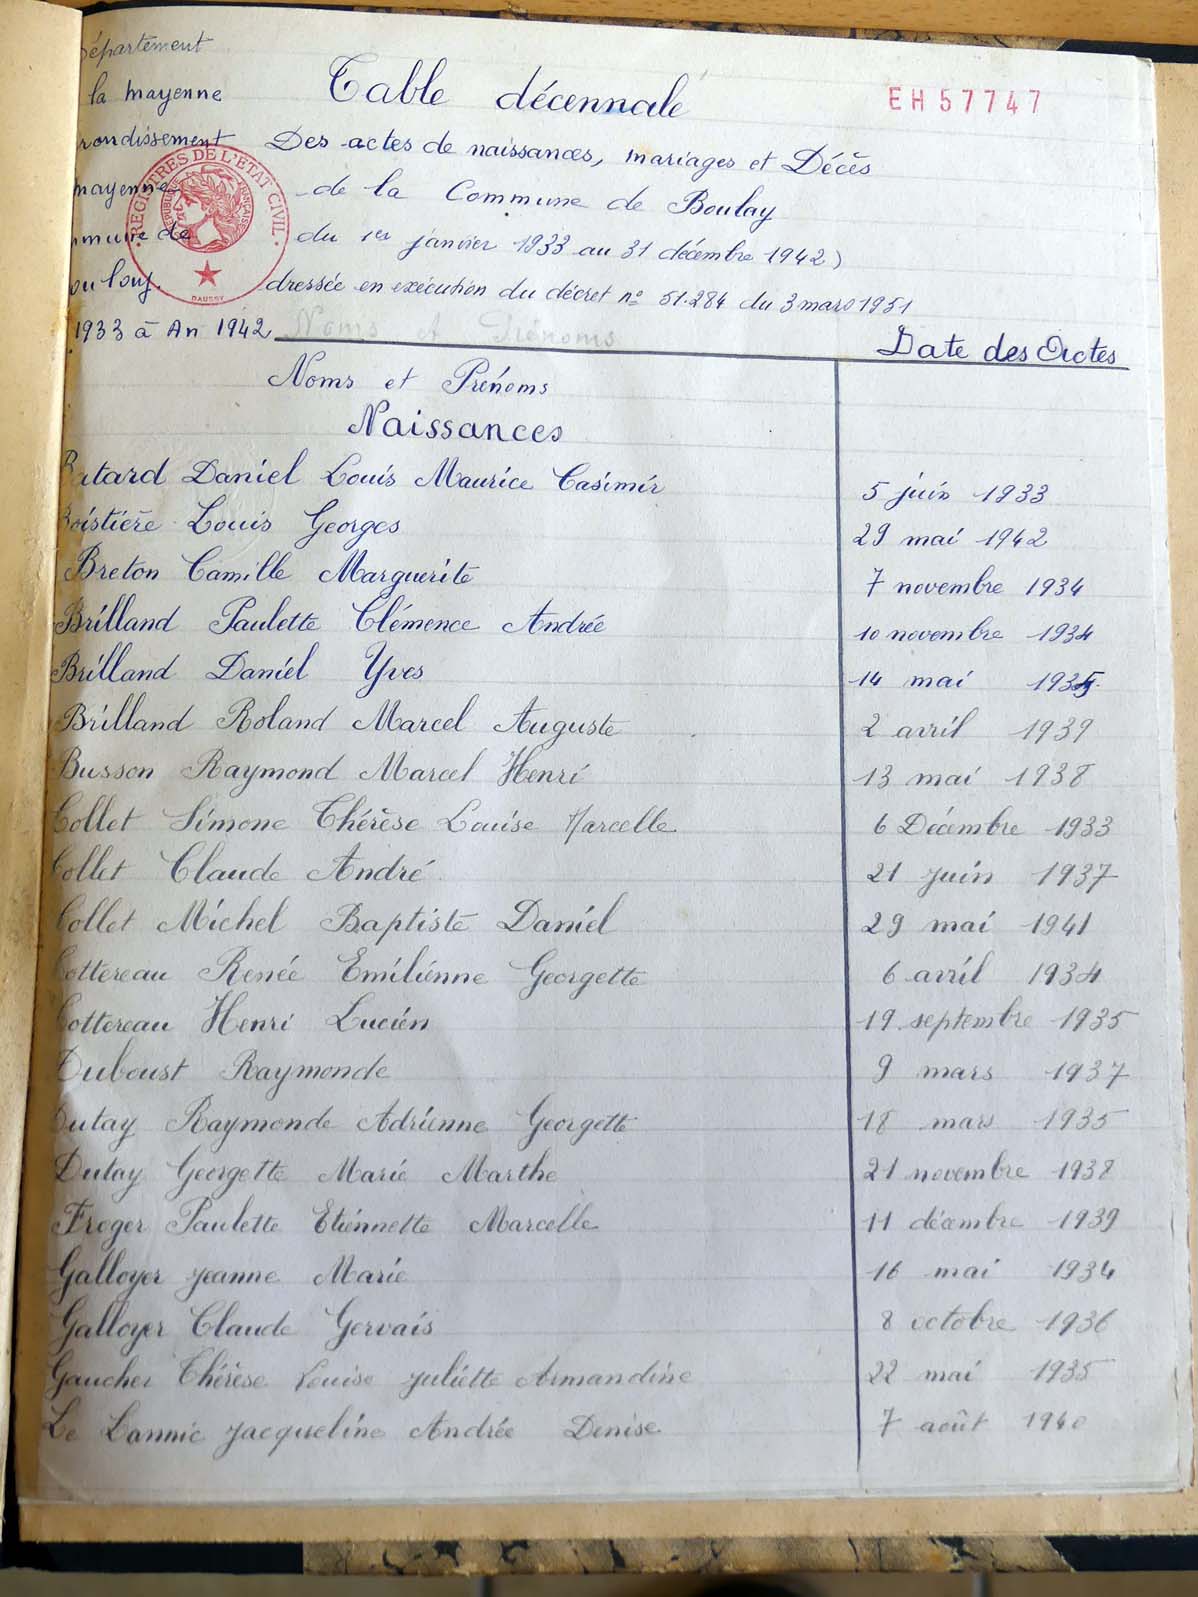 Département
la Mayenne
Table décennale
EH57747
rondissement
Des actes de naissances, mariages et Décès
mayenne
de la Commune de Boulay
mmune de
du 1er janvier 1933 au 31 décembre 1942)
oulay.
dressée en exécution du décret n° 51.284 du 3 mars 1951
REGISTRES DE L'ÉTAT CIVIL
RÉPUBLIQUE FRANÇAISE
DAUSSY
1933 à An 1942
Noms et Prénoms
Date des Actes
Noms et Prénoms
Naissances
Batard Daniel Louis Maurice Casimir 5 juin 1933
Boistière Louis Georges 29 mai 1942
Breton Camille Marguerite 7 novembre 1934
Brilland Paulette Clémence Andrée 10 novembre 1934
Brilland Daniel Yves 14 mai 1935
Brilland Roland Marcel Auguste 2 avril 1939
Busson Raymond Marcel Henri 13 mai 1938
Collet Simone Thérèse Louise Marcelle 6 Décembre 1933
Collet Claude André 21 juin 1937
Collet Michel Baptiste Daniel 29 mai 1941
Cottereau Renée Emilienne Georgette 6 avril 1934
Cottereau Henri Lucien 19 septembre 1935
Duboust Raymonde 9 mars 1937
Dutay Raymonde Adrienne Georgette 18 mars 1935
Dutay Georgette Marie Marthe 21 novembre 1938
Froger Paulette Etiennette Marcelle 11 décembre 1939
Galloyer Jeanne Marie 16 mai 1934
Galloyer Claude Gervais 8 octobre 1936
Gaucher Thérèse Louise Juliette Armandine 22 mai 1935
Le Lannic Jacqueline Andrée Denise 7 août 1940